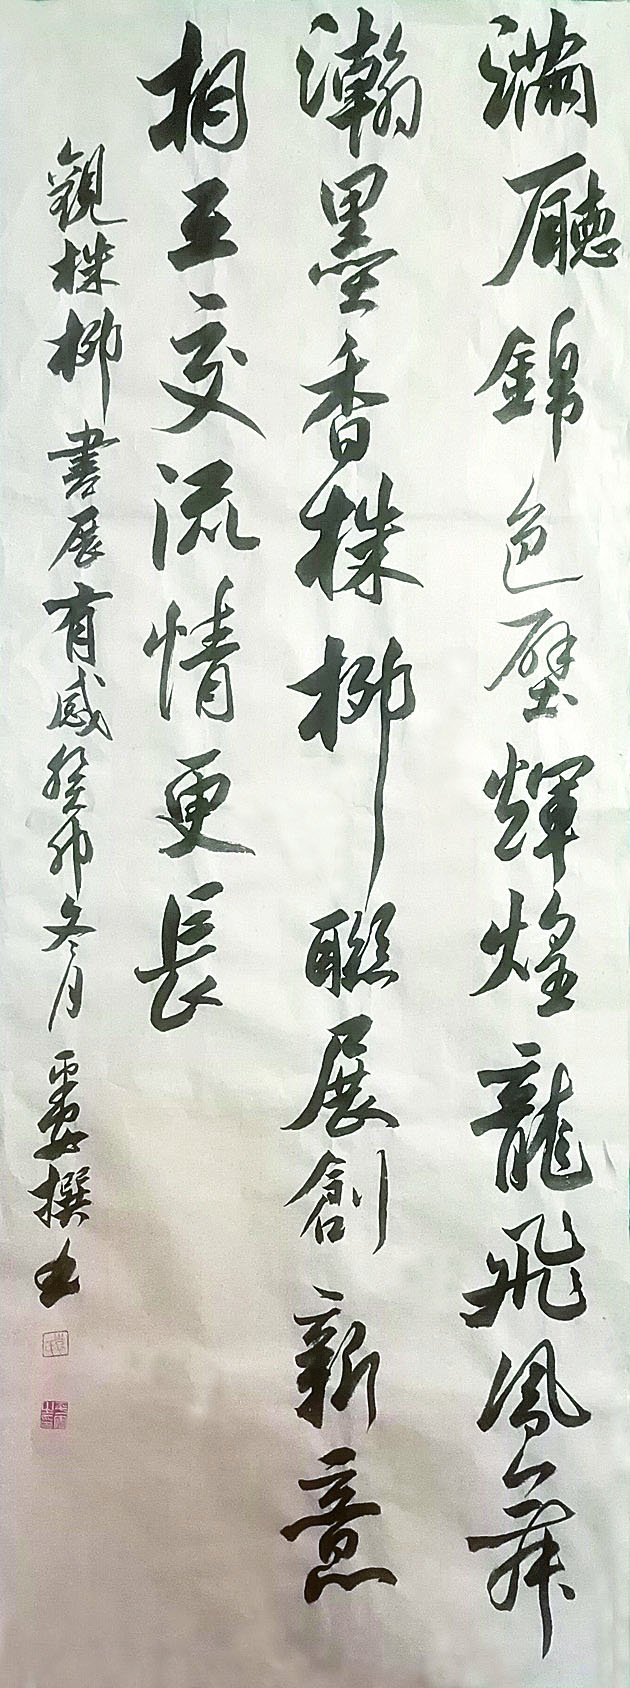 滿廳錦色壁輝煌龍飛鳳舞
瀚墨香株柳聯展創新意
相互交流情更長
觀株柳書展有感癸卯冬月撰書